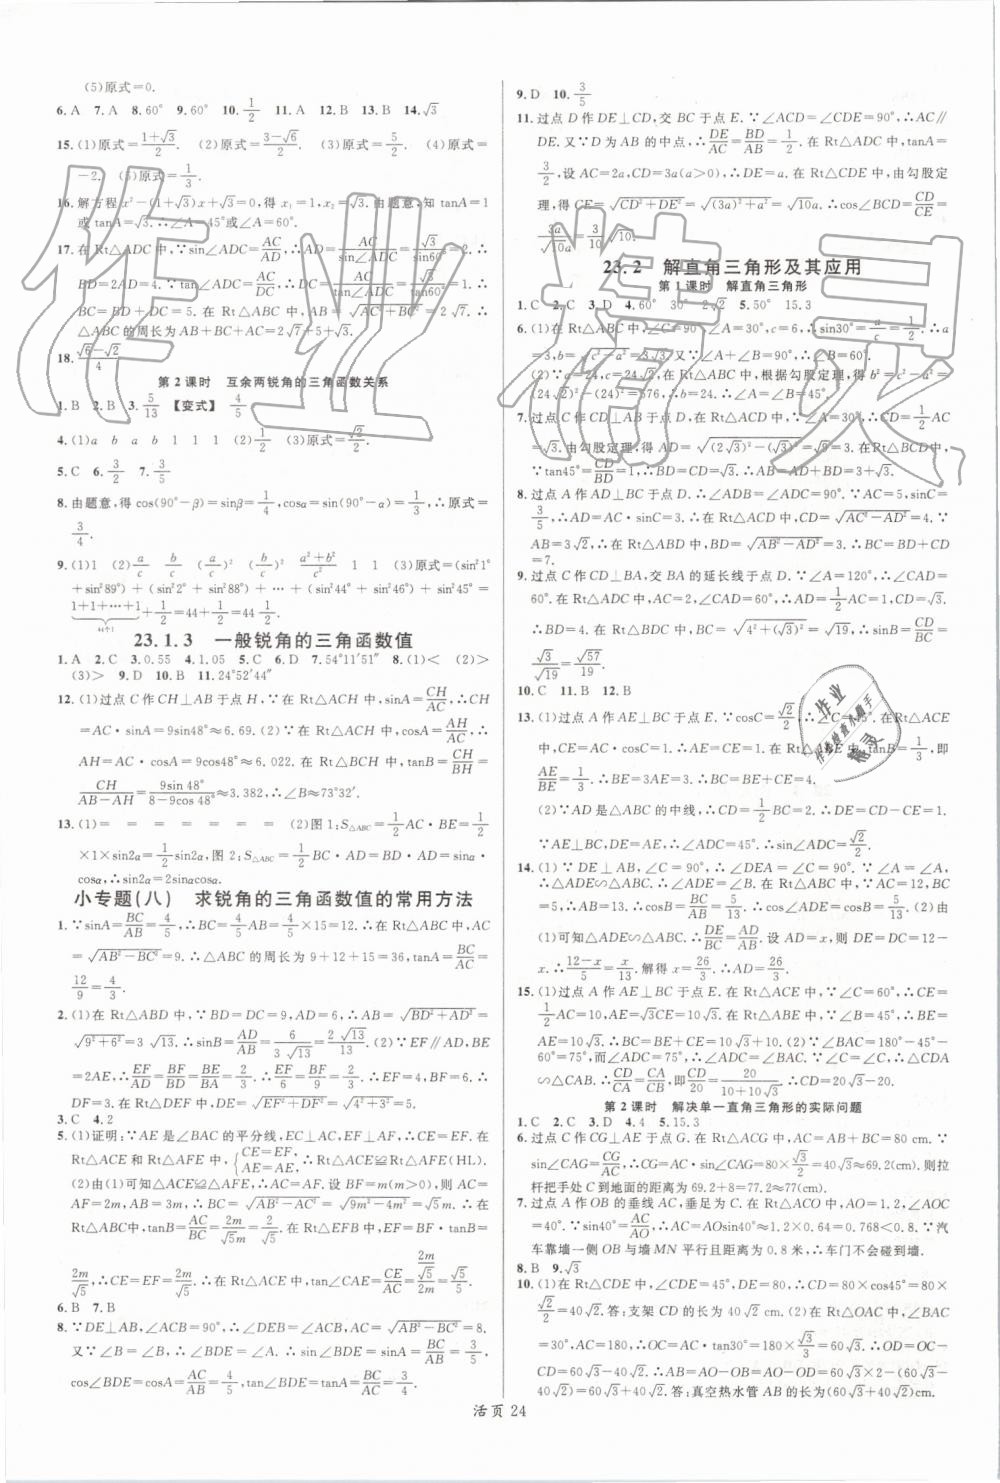 (5)原式=0.
6. A 7. A 8. 60° 9. 60° 10. 1/2 11. A 12. B 13. B 14. √3
15. (1)原式=(1+√3)/2. (2)原式=(3-√6)/2. (3)原式=5/2. (4)原式=
-2. (5)原式=1/3.
16. 解方程 x²-(1+√3)x+√3=0,得 x₁=1,x₂=√3. 由题意,知 tanA=1
或 tanA=√3. ∴∠A=45°或∠A=60°.
17. 在 Rt△ADC 中,∵sin∠ADC=AC/AD,∴AD=AC/sin∠ADC=√3/sin60°=2. ∴
BD=2AD=4. ∵tan∠ADC=AC/DC,∴DC=AC/tan∠ADC=√3/tan60°=1. ∴
BC=BD+DC=5. 在 Rt△ABC 中,AB=√(AC²+BC²)=2√7. ∴
△ABC 的周长为 AB+BC+AC=2√7+5+√3.
18. (√6-√2)/4
第 2 课时 互余两锐角的三角函数关系
1. B 2. B 3. 5/13 【变式】 4/5
4. (1)a b a b 1 1 1 (2)1/2 (3)原式=√2/2.
5. C 6. 3/2 7. 3/5
8. 由题意,得 cos(90°-β)=sinβ=1/4,cosα=sin(90°-α)=1/2. ∴原式=
3/4.
9. (1)1 (2)a/c b/c (a/c)² (b/c)² (a²+b²)/c² 1 1 (3)原式=(sin²1°
+sin²89°)+(sin²2°+sin²88°)+…+(sin²44°+sin²46°)+sin²45°=
1+1+…+1(44个1)+1/2=44+1/2=44 1/2.
23.1.3 一般锐角的三角函数值
1. A 2. C 3. 0.55 4. 1.05 5. C 6. D 7. 54°11′51″ 8. (1)< (2)>
(3)> 9. D 10. B 11. 24°52′44″
12. (1)过点 C 作 CH⊥AB 于点 H,∵在 Rt△ACH 中,sinA=CH/AC,∴CH
=AC·sinA=9sin48°≈6.69. (2)∵在 Rt△ACH 中,cosA=AH/AC,∴
AH=AC·cosA=9cos48°≈6.022. ∴在 Rt△BCH 中,tanB=CH/BH=
CH/(AB-AH)=9sin48°/(8-9cos48°)≈3.382,∴∠B≈73°32′.
13. (1)= = = = = = = (2)图 1;S△ABC=1/2AC·BE=1/2
×1×sin2α=1/2sin2α,图 2;S△ABC=1/2BC·AD=1/2×2BD·AD=sinα·
cosα,∴sin2α=2sinαcosα.
小专题(八) 求锐角的三角函数值的常用方法
1. ∵sinA=BC/AB=4/5,∴BC=4/5AB=4/5×15=12. ∴在 Rt△ABC 中,AC
=√(AB²-BC²)=9. ∴△ABC 的周长为 9+12+15=36,tanA=BC/AC=
12/9=4/3.
2. (1)在 Rt△ABD 中,∵BD=DC=9,AD=6,∴AB=√(BD²+AD²)=
√(9²+6²)=3√13. ∴sinB=AD/AB=6/(3√13)=2√13/13. (2)∵EF∥AD,BE=
2AE,∴EF/AD=BF/BD=BE/BA=2/3. ∴EF/6=BF/9=2/3. ∴EF=4,BF=6. ∴
DF=3. 在 Rt△DEF 中,DE=√(EF²+DF²)=√(4²+3²)=5.
3. C 4. 2
5. (1)证明:∵AE 是∠BAC 的平分线,EC⊥AC,EF⊥AF,∴CE=EF. 在
Rt△ACE 和 Rt△AFE 中,{CE=EF, AE=AE,∴Rt△ACE≌Rt△AFE(HL).
(2)由(1)可知△ACE≌△AFE,∴AC=AF. 设 BF=m(m>0),则 AC=
AF=2m,AB=3m,∴BC=√(AB²-AC²)=√(9m²-4m²)=√5m. ∴在 Rt
△ABC 中,tanB=AC/BC=2m/(√5m)=2/√5. ∴在 Rt△EFB 中,EF=BF·tanB=
2m/√5,∴CE=EF=2m/√5. ∴在 Rt△ACE 中,tan∠CAE=CE/AC=(2m/√5)/2m=√5/5.
6. B 7. B
8. ∵DE⊥AB,∠ACB=90°,∴在 Rt△ACB 中,AC=√(AB²-BC²)=8.
又∵∠A+∠B=90°,∴∠BDE=∠A. ∴sin∠BDE=sinA=BC/AB=3/5,
cos∠BDE=cosA=AC/AB=4/5,tan∠BDE=tanA=BC/AC=3/4.
9. D 10. 3/5
11. 过点 D 作 DE⊥CD,交 BC 于点 E. ∵∠ACD=∠CDE=90°,∴AC∥
DE. 又∵D 为 AB 的中点,∴DE/AC=BD/AB=1/2. 在 Rt△ADC 中,tanA=
3/2,设 AC=2a,CD=3a(a>0),∴DE=a. 在 Rt△CDE 中,由勾股定
理,得 CE=√(CD²+DE²)=√((3a)²+a²)=√10a. ∴cos∠BCD=CD/CE=
3a/(√10a)=3/10√10.
23.2 解直角三角形及其应用
第 1 课时 解直角三角形
1. C 2. C 3. D 4. 60° 30° 2√2 5. 50° 15.3
6. (1)在 Rt△ABC 中,∠C=90°,∠A=30°,c=6,∴sin30°=a/c=1/2. ∴a
=3,b=√(c²-a²)=3√3,∴∠B=60°.
(2)∵∠C=90°,a=24,c=24√2,∴在 Rt△ABC 中,根据勾股定理,得 b²=c²-a²=
(24√2)²-(24)²=24². ∴b=24. ∴∠A=∠B=45°.
7. 过点 C 作 CD⊥AB 于点 D,在 Rt△ACD 中,∵∠A=30°,∴CD=1/2AC
=√3. 由勾股定理,得 AD=√((2√3)²-(√3)²)=√9=3. 在 Rt△BCD 中,
∵tan45°=CD/BD=1,∴BD=CD=√3. ∴AB=AD+BD=3+√3.
8. 过点 A 作 AD⊥BC 于点 D. ∴∠ADB=∠ADC=90°. ∵AC=5,sinC=
3/5,∴AD=AC·sinC=3. ∴在 Rt△ACD 中,CD=√(AC²-AD²)=4. ∵
AB=3√2,∴在 Rt△ABD 中,BD=√(AB²-AD²)=3. ∴BC=BD+CD
=7.
9. 过点 C 作 CD⊥BA,交 BA 的延长线于点 D. ∵∠A=120°,∴∠CAD=
60°. ∴在 Rt△ADC 中,AC=2,∠CAD=60°,∴AD=1,CD=√3.
∴BD=4. 在 Rt△BDC 中,BC=√(4²+(√3)²)=√19,∴sinB=CD/BC=
√3/√19=√57/19.
10. C 11. B 12. B
13. (1)过点 A 作 AE⊥BC 于点 E. ∵cosC=√2/2,∴∠C=45°. 在 Rt△ACE
中,CE=AC·cosC=1. ∴AE=CE=1. 在 Rt△ABE 中,tanB=1/3,即
AE/BE=1/3. ∴BE=3AE=3. ∴BC=BE+CE=4.
(2)∵AD 是△ABC 的中线,∴CD=1/2BC=2. ∴DE=CD-CE=1.
∵AE⊥BC,DE=AE,∴∠ADC=45°. ∴sin∠ADC=√2/2.
14. (1)∵DE⊥AB,∠C=90°,∴∠DEA=∠C=90°. ∵∠A=∠A,
∴△ADE∽△ABC. ∴∠ADE=∠B. 在 Rt△ABC 中,∵AC=12,BC
=5,∴AB=13. ∴cosB=BC/AB=5/13. ∴cos∠ADE=5/13. (2)由
(1)可知△ADE∽△ABC,∴DE/BC=AD/AB. 设 AD=x,则 DE=DC=12-
x. ∴(12-x)/5=x/13. 解得 x=26/3. ∴AD=26/3.
15. (1)过点 A 作 AE⊥BC 于点 E. 在 Rt△ACE 中,∵∠C=60°,∴CE=
1/2AC=10,AE=√3CE=10√3. 在 Rt△ABE 中,∵∠B=45°,∴BE=
AE=10√3. ∴BC=BE+CE=10√3+10. (2)∵∠BAC=180°-45°-
60°=75°,而∠ADC=75°,∴∠ADC=∠BAC. ∵∠C=∠C,∴△CDA
∽△CAB. ∴CD/CA=CA/CB,即CD/20=20/(10+10√3). ∴CD=20√3-20.
第 2 课时 解决单一直角三角形的实际问题
1. C 2. C 3. D 4. 4 5. 15.3
6. 过点 C 作 CG⊥AE 于点 G. 在 Rt△ACG 中,AC=AB+BC=80 cm. ∵
sin∠CAG=CG/AC,∴CG=AC·sin∠CAG=80·sin60°=40√3≈69.2(cm). 则拉
杆把手处 C 到地面的距离为 69.2+8=77.2(cm).
7. 过点 A 作 OB 的垂线 AC,垂足为 C. 在 Rt△ACO 中,AO=1.2,∠AOC
=40°. ∵sin40°=AC/AO,∴AC=AOsin40°≈1.2×0.64=0.768<0.8. ∵汽
车靠墙一侧 OB 与墙 MN 平行且距离为 0.8 米,∴车门不会碰到墙.
8. B 9. √3
10. (1)在 Rt△CDE 中,∠CDE=45°,DE=80,∴CD=80×cos45°=80×
√2/2=40√2. 答:支架 CD 的长为 40√2 cm. (2)在 Rt△OAC 中,∠BAC
=30°,AC=180,∴OC=AC·tan30°=180×√3/3=60√3. ∴OD=OC-
CD=60√3-40√2. ∴AB=AO-OB=AO-OD=60√3×2-(60√3-
40√2)=60√3+40√2. 答:真空热水管 AB 的长为(60√3+40√2)cm.
活页 24
作业精灵
作业
作业检查小助手
精灵